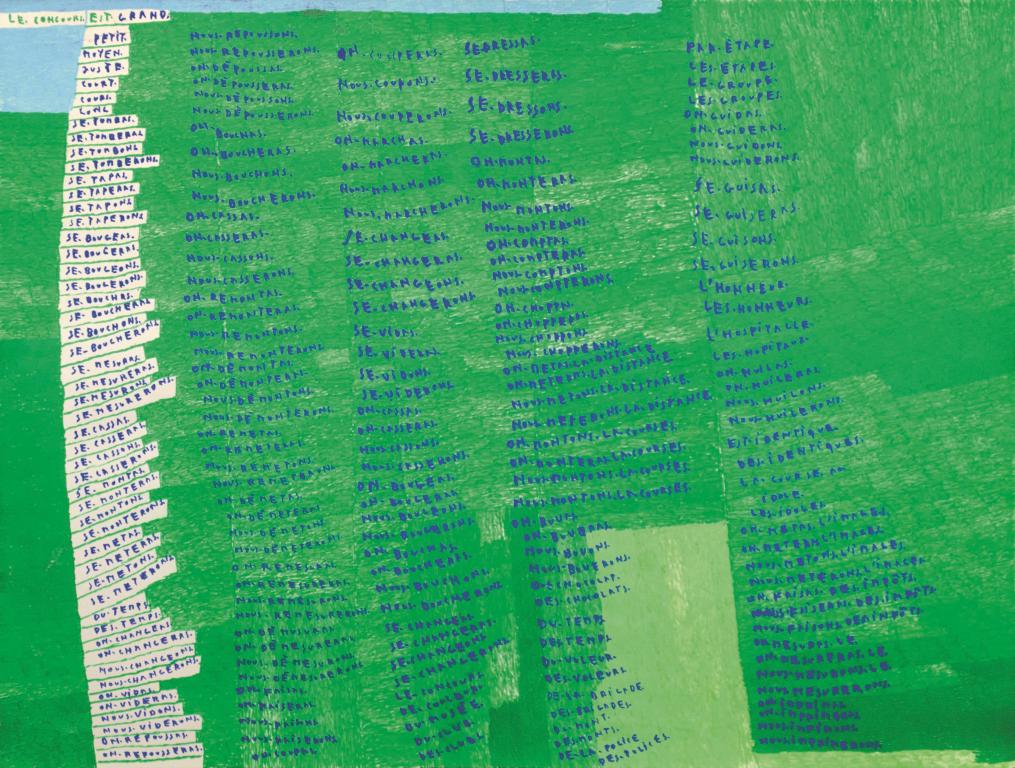 LE. CONCOURS. EST. GRAND.
PETIT.
MOYEN.
JUSTE.
COURT.
COURS.
LONG
SE. TOMBAS.
SE. TOMBERAS
SE. TOMBONS
SE. TOMBERONS.
SE. TAPAS.
SE. TAPERAS.
SE. TAPONS
SE. TAPERONS.
SE. BOUGEAS.
SE. BOUGERAS.
SE. BOUGEONS.
SE. BOUGERONS.
SE. BOUCHAS.
SE. BOUCHERAS
SE. BOUCHONS.
SE. BOUCHERONS.
SE. MESURAS.
SE. MESURERAS.
SE. MESURONS.
SE. MESURERONS.
SE. CASSAS.
SE. CASSERAS.
SE. CASSONS.
SE. CASSERONS.
SE. MONTAS.
SE. MONTERAS.
SE. MONTONS.
SE. MONTERONS.
SE. METAS.
SE. METERAS.
SE. METONS.
SE. METERONS.
DU. TEMPS.
DES. TEMPS.
ON. CHANGEAS.
ON. CHANGERAS.
NOUS. CHANGEONS.
NOUS. CHANGERONS.
ON. VIDAS.
ON. VIDERAS.
NOUS. VIDONS.
NOUS. VIDERONS.
ON. REPOUSSAS.
ON. REPOUSSERAS.
NOUS. REPOUSSONS.
NOUS. REPOUSSERONS.
ON. DÉPOUSSAS.
ON. DÉPOUSSERAS.
NOUS. DÉPOUSSONS.
NOUS. DÉPOUSSERONS.
ON. BOUCHAS.
ON. BOUCHERAS.
NOUS. BOUCHONS.
NOUS. BOUCHERONS.
ON. CASSAS.
ON. CASSERAS.
NOUS. CASSONS.
NOUS. CASSERONS.
ON. REMONTAS.
ON. REMONTERAS.
NOUS. REMONTONS.
NOUS. REMONTERONS.
ON. DÉMONTAS.
ON. DÉMONTERAS.
NOUS. DÉMONTONS.
NOUS. DÉMONTERONS.
ON. REMETAS.
ON. REMETERAS.
NOUS. REMETONS.
ON. DÉMETAS.
ON. DÉMESURAS.
NOUS. DÉMESURONS.
ON. FAISAS.
ON. FAISERAS.
NOUS. FAISONS.
NOUS. FAISERONS.
ON. COUPAS.
ON. COUPERAS.
NOUS. COUPONS.
NOUS. COUPERONS.
ON. MARCHAS.
ON. MARCHERAS.
NOUS. MARCHONS.
NOUS. MARCHERONS.
SE. CHANGEAS.
SE. CHANGERAS.
SE. CHANGEONS.
SE. CHANGERONS.
SE. VIDAS.
SE. VIDERAS.
SE. VIDONS.
SE. VIDERONS.
ON. CASSAS.
ON. CASSERAS.
NOUS. CASSONS.
NOUS. CASSERONS.
ON. BOUGEAS.
ON. BOUGERAS.
NOUS. BOUGEONS.
NOUS. BOUGERONS.
ON. BOUCHAS.
ON. BOUCHERAS.
NOUS. BOUCHONS.
NOUS. BOUCHERONS.
SE. CHANGEAS.
SE. CHANGERAS.
SE. CHANGEONS.
SE. CHANGERONS.
LE. CONCOURS.
DU. MUSÉE.
DU. CLUB.
DES. CLUBS.
SE. DRESSAS.
SE. DRESSERAS.
SE. DRESSONS.
SE. DRESSERONS.
ON. MONTAS.
ON. MONTERAS.
NOUS. MONTONS.
NOUS. MONTERONS.
ON. COMPTAS.
ON. COMPTERAS.
NOUS. COMPTONS.
NOUS. COMPTERONS.
ON. CHOPPAS.
ON. CHOPPERAS.
NOUS. CHOPPONS.
NOUS. CHOPPERONS.
ON. METAS. LA. DISTANCE.
ON. METERAS. LA. DISTANCE.
NOUS. METONS. LA. DISTANCE.
NOUS. METERONS. LA. DISTANCE.
ON. MONTONS. LA. COURSES.
ON. MONTERAS. LA. COURSES.
NOUS. MONTONS. LA. COURSES.
NOUS. MONTONS. LA. COURSES.
ON. BOUVAS.
ON. BOUVERAS.
NOUS. BOUVONS.
NOUS. BOUVERONS.
DE. CHOCOLAT.
DES. CHOCOLATS.
DU. TEMPS
DES. TEMPS
DU. VOLEUR.
DES. VOLEURS.
DE. LA. BRIGADE
DES. BRIGADES
MONT.
DES. MONTS.
DE. LA. POLICE
DES. POLICES.
PAR. ÉTAPE.
LES. ÉTAPES.
LE. GROUPE.
LES. GROUPES.
ON. GUIDAS.
ON. GUIDERAS.
NOUS. GUIDONS.
NOUS. GUIDERONS.
SE. GUISAS.
SE. GUISERAS.
SE. GUISONS.
SE. GUISERONS.
L'HONNEUR.
LES. HONNEURS.
L'HOSPITALLE.
LES. HOPITAUX.
ON. HUILAS.
ON. HUILERAS.
NOUS. HUILONS.
NOUS. HUILERONS.
EST. IDENTIQUE.
DES. IDENTIQUES.
LA. COURSE. AU
IDOLE.
LES. IDOLES.
ON. METAS. L'IMAGES.
ON. METERAS. L'IMAGES.
NOUS. METONS. L'IMAGES.
NOUS. METERONS. L'IMAGES.
ON. FAISAS. DES. IMPÔTS.
NOUS. FAISONS. DES. IMPÔTS.
ON. MESURAS. LE.
ON. MESURERAS. LE.
NOUS. MESURONS. LE.
NOUS. MESURERONS.